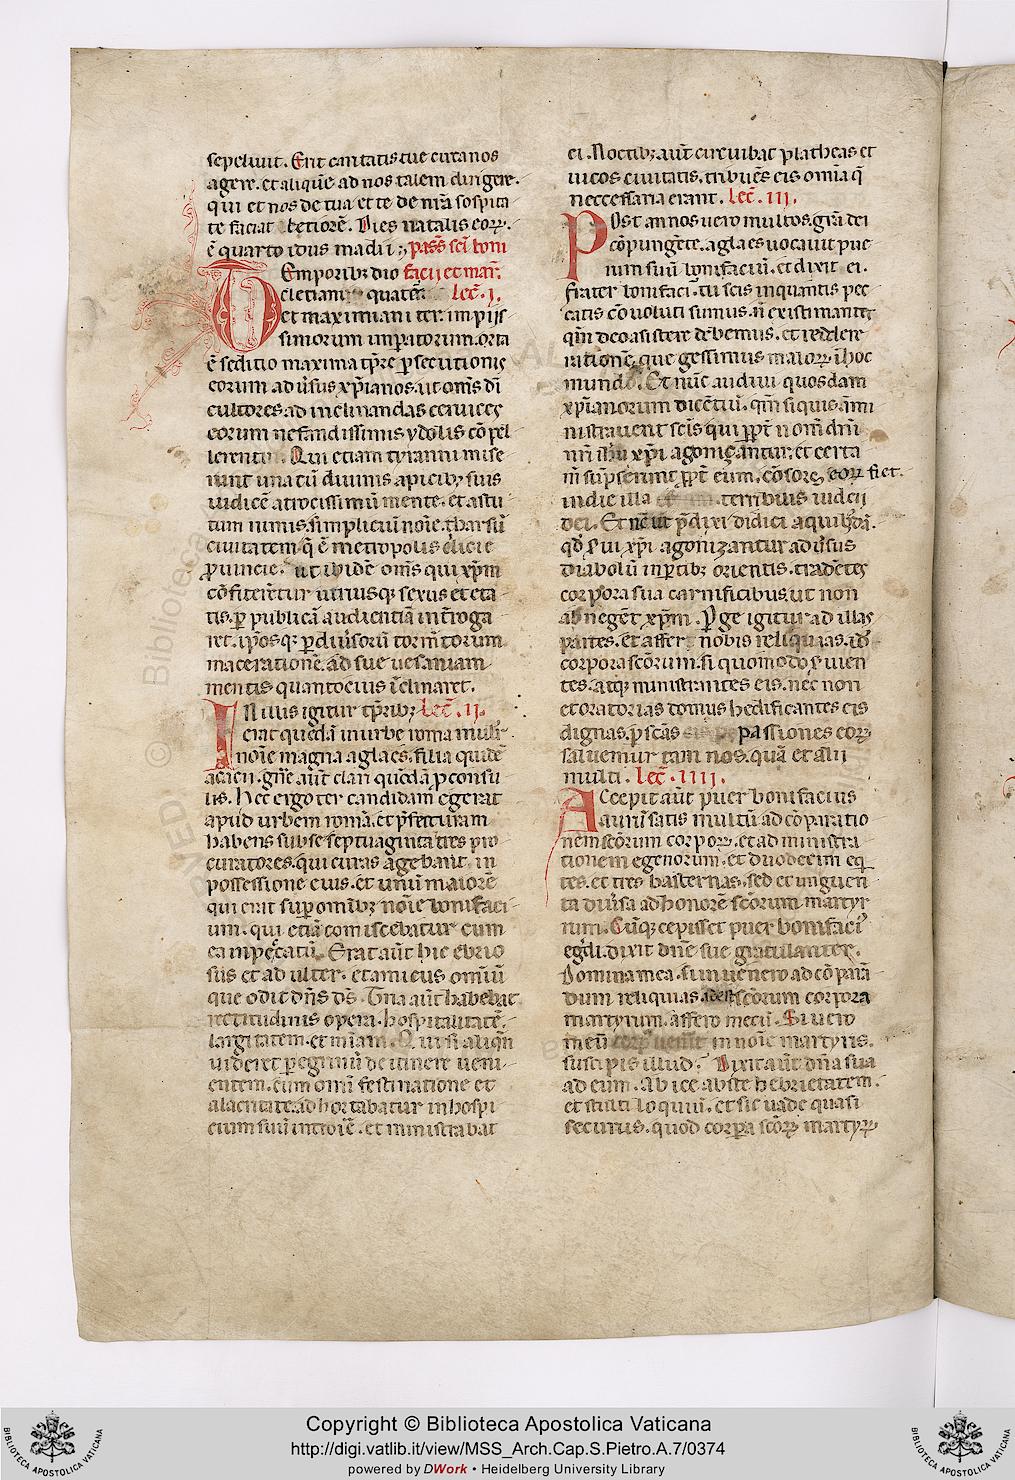 sepeliuit. Erit caritatis tue cura nos
agere. et aliquē ad nos talem dirigere.
qui et nos de tua et te de nr̄a sospita
te faciat letiorē. Dies natalis eoꝝ.
ē quarto idus madii; pass̄ sc̄i boni
Temporibꝫ dio facii et mar̄.
cletiani quater lec̄. i.
et maximiani ter. impiis
simorum imꝑatorum. orta
ē seditio maxima tp̄re ꝑsecutionis
eorum adūsus xp̄ianos. ut om̄s dī
cultores. ad inclinandas ceruices
eorum nefandissimis ydolis cō pel
lerentur. Qui etiam tyranni mise
runt una cū diuinis apicibꝫ suis
iudicē atrocissimū mente. et astu
tum nimis. simpliciū noīe. tharsū
ciuitatem q̄ ē metropolis cilicie
ꝓuincie. ut ibidē om̄s qui xp̄m
cōfiterētur utriusqꝫ sexus et eta
tis. ꝑ publicā audientiā int̄roga
ret. ip̄osqꝫ ꝑ diūsorū torm̄torum
macerationē. ad sue uesaniam
mentis quantocius īclinaret.
In illis igitur tp̄ribꝫ lec̄. ii.
erat quedā in urbe roma mulier
noīe magna aglaes. filia quidē
acien. gn̄e aūt clari quedā ꝓconsu
lis. Hec ergo ter candidam egerat
apud urbem romā. et p̄fecturam
habens sub se septuaginta tres pro
curatores. qui curas agebant in
possessione eius. et unū maiorē
qui erat suꝑ omībꝫ noīe bonifaci
um. qui etiā comiscebatur cum
ea in pec̄catū. Erat aūt hic ebrio
sus et adulter. et amicus omīū
que odit dn̄s ds̄. Tria aūt habebat
rectitudinis opera. hospitalitatē.
largitatem. et mīam. Qui si aliqn̄
uideret ꝑegrinū de itinere ueni
entem. eum omī festinatione et
alacritate. adhortabatur in hospi
cium suū introire. et ministrabat
ei. Noctibꝫ aūt circuibat platheas et
uicos ciuitatis. tribuēs eis omīa q̄
neccessaria erant. lec̄. iii.
Post annos uero multos. grā dei
cōpungēte. aglaes uocauit pue
rum suū bonifaciū. et dixit ei.
frater bonifaci. tu scis in quantis pec
catis cōuoluti sumus. n̄ existimantes
qm̄ deo asistere debemus. et reddere
rationē. que gessimus maloꝝ ī hoc
mundo. Et nūc audiui quosdam
xp̄ianorum dicētiū. qm̄ si quis āmi
nistrauerit sc̄is qui ꝓpt̄ nom̄ dn̄i
nr̄i ihū xp̄i agonigantur. et certa
m̄ sūpserint ꝓpt̄ eum. cōsors eoꝝ fiet.
in die illa terribilis iudicii
dei. Et nc̄ ut p̄dixi didici a quibꝫdā.
qd̄ sui xp̄i agonizantur adūsus
diabolū in ꝑtibꝫ orientis. tradētes
corpora sua carnificibus. ut non
abnegēt xp̄m. Ꝑge igitur ad illas
partes. et affer nobis reliquias. ids
corpora sc̄orum. si quomodo suien
tes. atqꝫ ministrantes eis. nec non
et oratorias domus hedificantes eis
dignas. ꝑ sc̄as passiones eoꝝ
saluemur tam nos. quā et alii
multi. lec̄. iiii.
Accepit aūt puer bonifacius
aurū satis multū ad cōparatio
nem sc̄orum corpoꝝ. et ad ministra
tionem egenorum. et duodecim eq̄
tes. et tres basternas. sed et unguen
ta diūsa ad honorē sc̄orum martyr
rum. Cūqꝫ cepisset puer bonifaci
egdi. dixit dn̄e sue gratulanter.
Domina mea. si inuenero ad cōparā
dum reliquias sc̄orum corpora
martyrum. affero mecū. Si uero
meū corpꝰ uenit in noīe martyris.
suscipis illud? Dixit aūt dn̄a sua
ad eum. Abice abs te hebrietatem.
et stulti loquiū. et sic uade quasi
securus. quod corpora sc̄oꝝ martyꝝ
Copyright © Biblioteca Apostolica Vaticana
http://digi.vatlib.it/view/MSS_Arch.Cap.S.Pietro.A.7/0374
powered by DWork • Heidelberg University Library
BIBLIOTECA APOSTOLICA VATICANA
BIBLIOTECA APOSTOLICA VATICANA